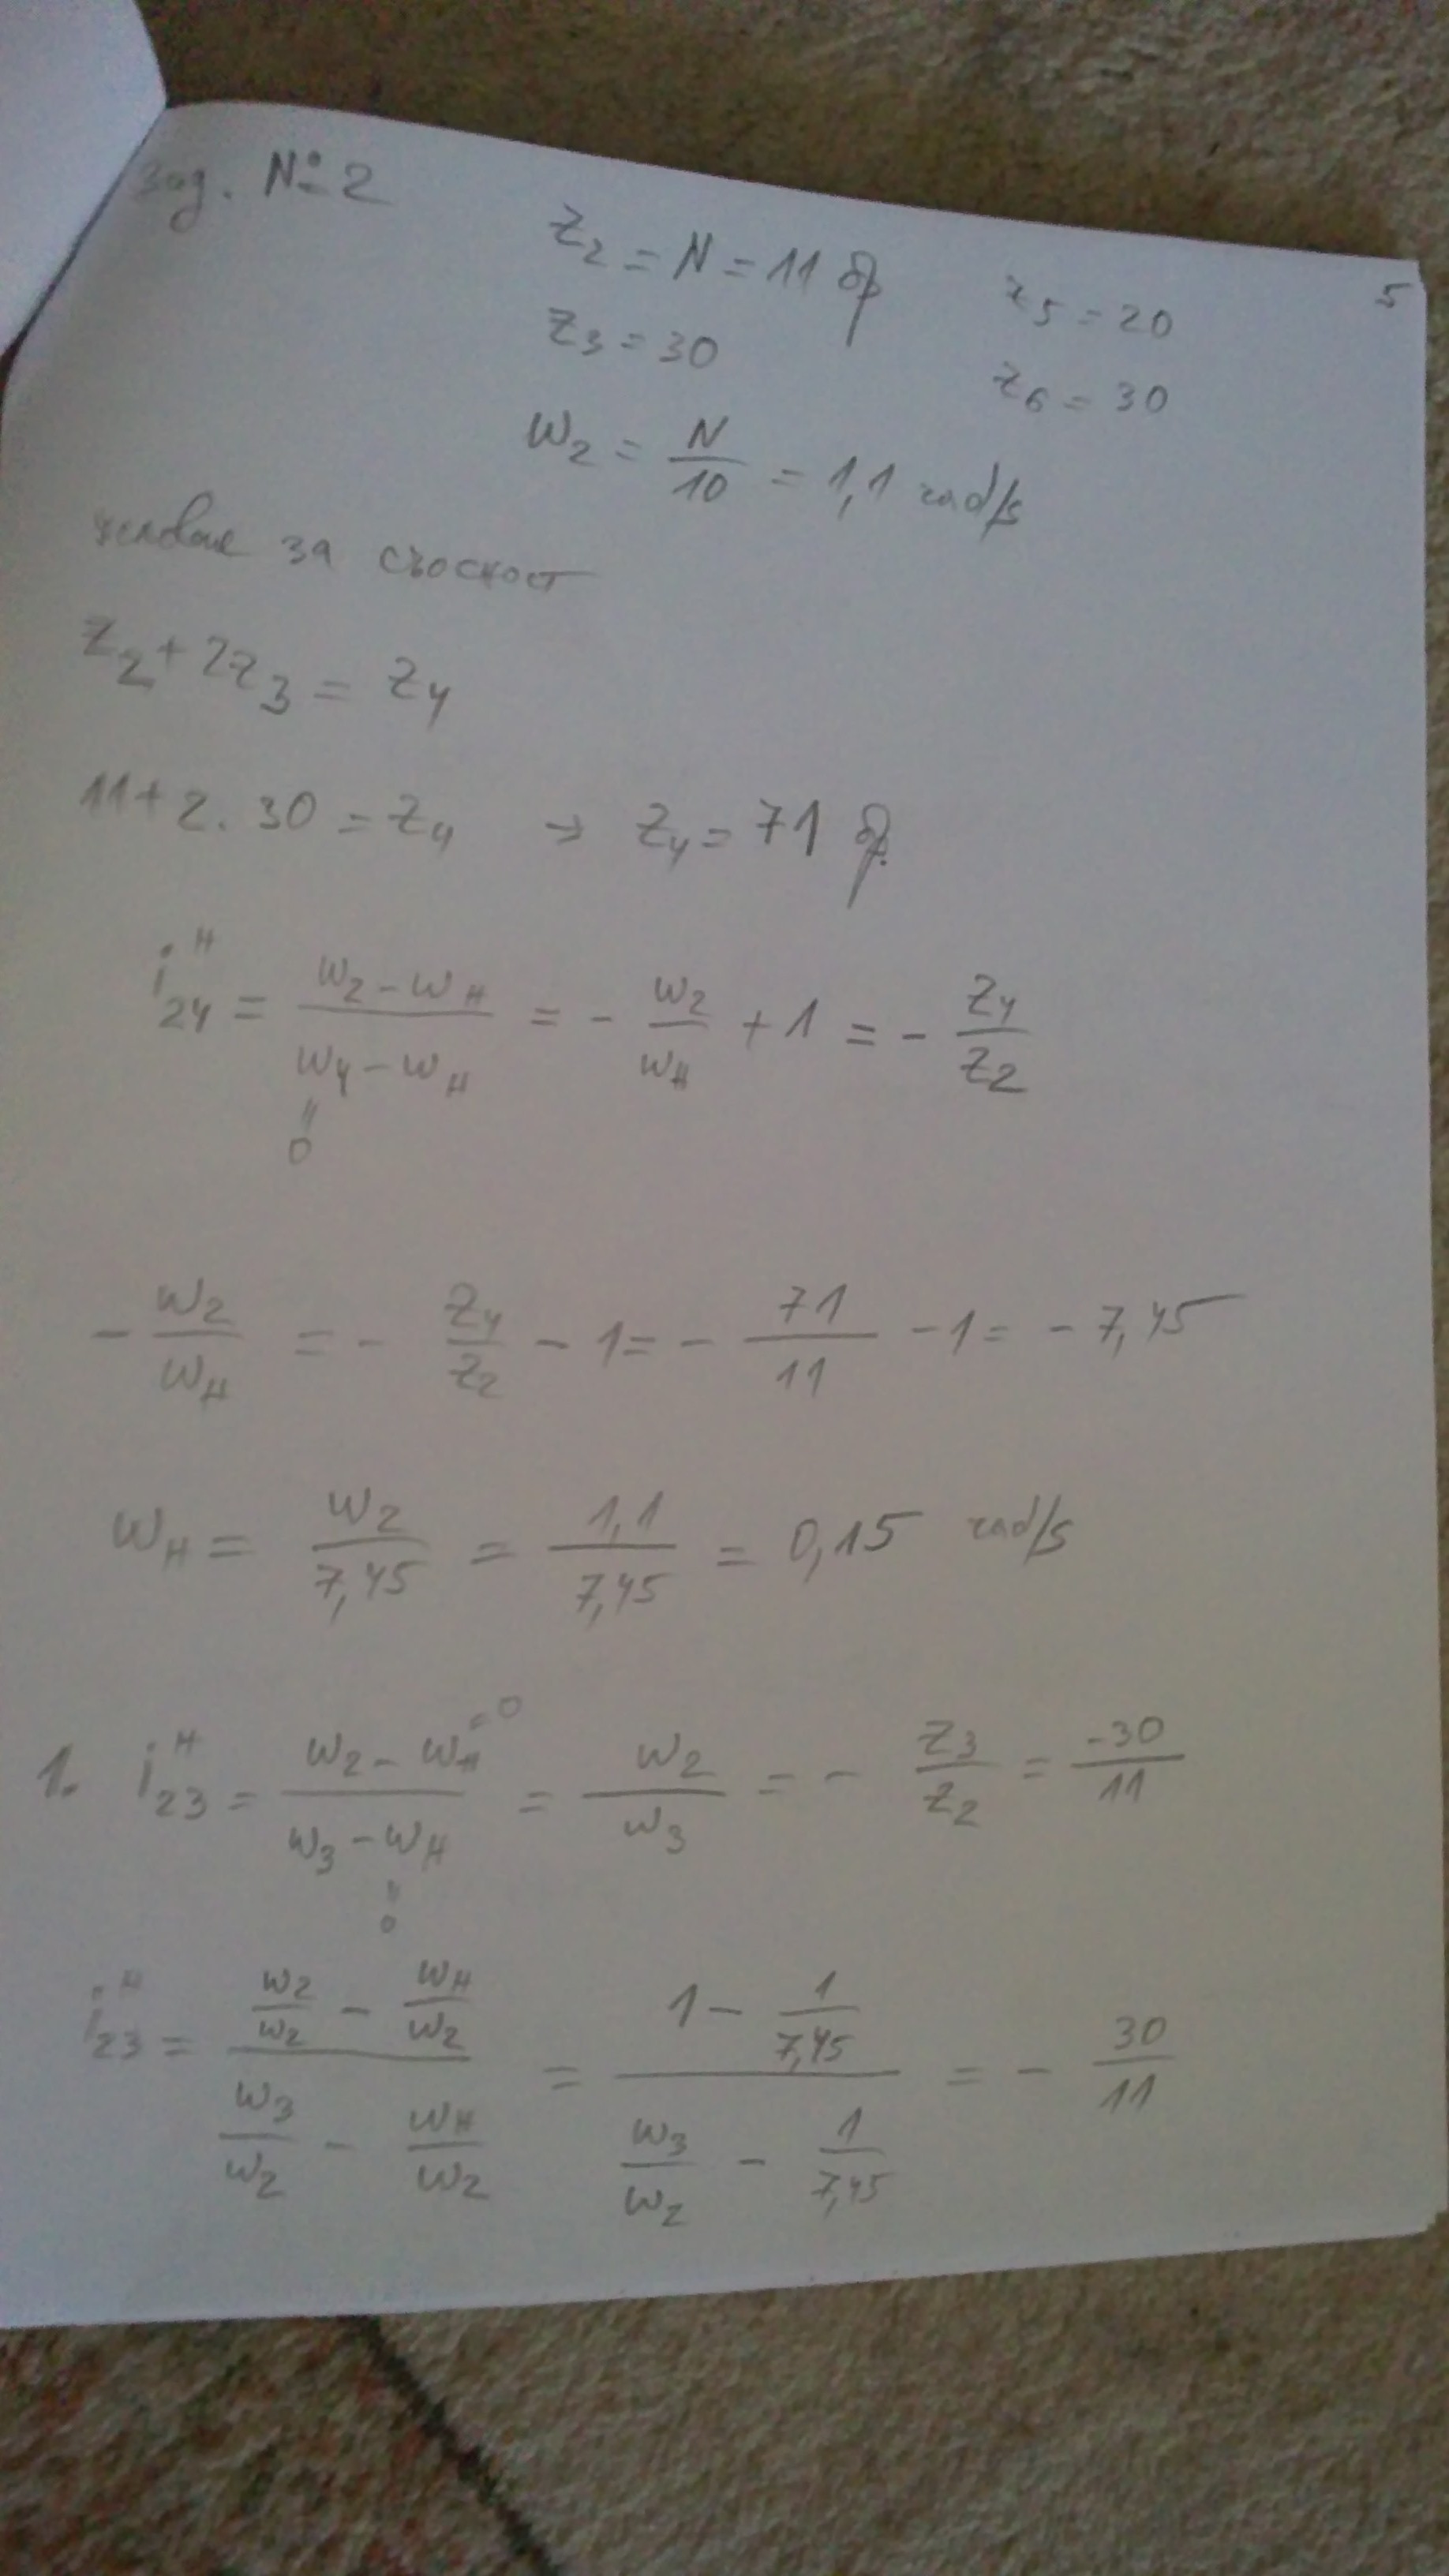 зад. №2
z2 = N = 11 бр
z5 = 20
5
z3 = 30
z6 = 30
w2 = N/10 = 1,1 rad/s
условие за съосност
z2 + 2z3 = z4
11 + 2. 30 = z4 → z4 = 71 бр.
i24^H = (w2 - wH)/(w4 - wH) = - w2/wH + 1 = - z4/z2
"
0
- w2/wH = - z4/z2 - 1 = - 71/11 - 1 = - 7,45
wH = w2/7,45 = 1,1/7,45 = 0,15 rad/s
= 0
1. i23^H = (w2 - wH)/(w3 - wH) = w2/w3 = - z3/z2 = -30/11
"
0
i23^H = (w2/w2 - wH/w2)/(w3/w2 - wH/w2) = (1 - 1/7,45)/(w3/w2 - 1/7,45) = - 30/11